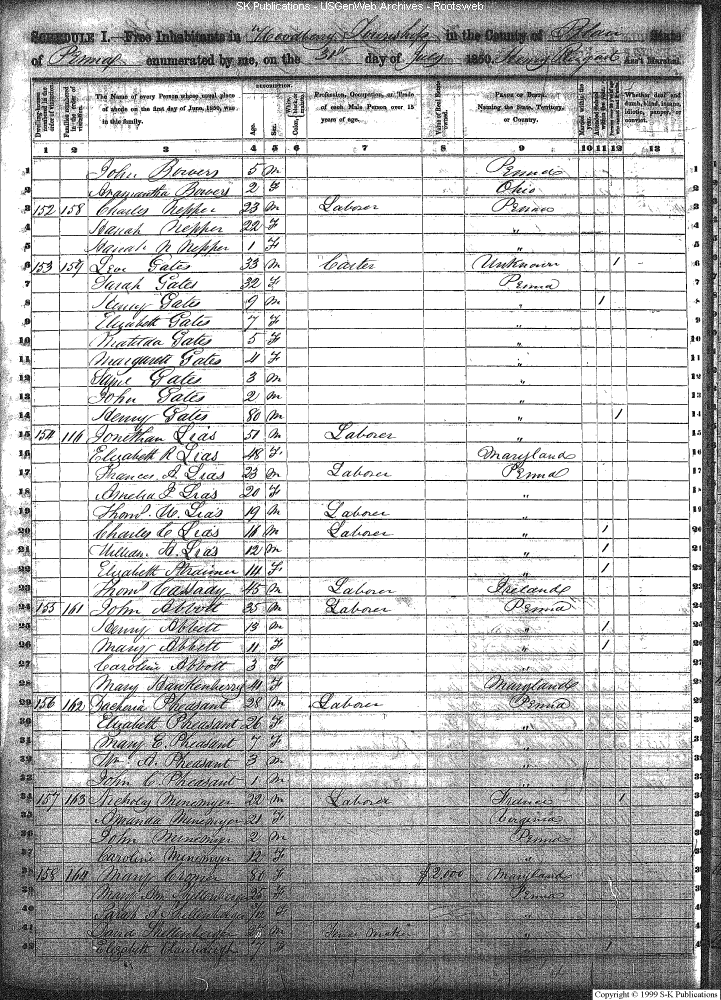 SK Publications - USGenWeb Archives - Rootsweb
SCHEDULE I.—Free Inhabitants in Woodbury Township in the County of Blair State
of Penna enumerated by me, on the 31st day of July 1850. Ass't Marshal.
Dwelling-houses numbered in the order of visitation.
Families numbered in the order of visitation.
The Name of every Person whose usual place of abode on the first day of June, 1850, was in this family.
DESCRIPTION.
Age.
Sex.
Color, White, black, or mulatto.
Profession, Occupation, or Trade of each Male Person over 15 years of age.
Value of Real Estate owned.
PLACE OF BIRTH. Naming the State, Territory, or Country.
Married within the year.
Whether deaf and dumb, blind, insane, idiotic, pauper, or convict.
1 2 3 4 5 6 7 8 9 10 11 12 13
1 John Bowers 5 M Penna
2 Aramantha Bowers 2 F Ohio
3 152 158 Charles Nepper 23 M Laborer Penna
4 Nepper 22 F "
5 Nepper 1 F "
6 153 159 Levi Gates 33 M Unknown 1
7 Sarah Gates 32 F Penna
8 Henry Gates 9 M " 1
9 Elizabeth Gates 7 F "
10 Matilda Gates 5 F "
11 Margarett Gates 4 F "
12 Gates 3 M "
13 John Gates 2 M "
14 Henry Gates 80 M " 1
15 154 Jonathan Lias 51 M Laborer "
16 Elizabeth R Lias 48 F Maryland
17 Frances A. Lias 23 M Laborer Penna
18 Amelia Lias 20 F "
19 Thoms Lias 19 M Laborer "
20 Charles C Lias 16 M Laborer " 1
21 William Lias 12 M " 1
22 Elizabeth 14 F " 1
23 Thoms Cassady 45 M Laborer Ireland
24 155 161 John Abbott 35 M Laborer Penna
25 Henry Abbett 13 M " 1
26 Mary Abbett 11 F " 1
27 Caroline Abbott 3 F "
28 Mary Hankenberry 41 F Maryland
29 156 162 Zacheria Pheasant 28 M Laborer Penna
30 Elizabeth Pheasant 26 F "
31 Mary E. Pheasant 7 F "
32 Wm A. Pheasant 3 M "
33 John C. Pheasant 1 M "
34 157 163 Nicholas Minemyer 22 M Laborer France 1
35 Amanda Minemyer 21 F Virginia
36 John Minemyer 2 M Penna
37 Caroline Minemyer 12 F "
38 158 164 Mary Cromer 80 F $2,000 Maryland
39 Mary Shellenberger 25 F Penna
40 Sarah Shellenberger F "
41 David Shellenberger M "
42 Elizabeth 7 F 1
Copyright © 1999 S-K Publications